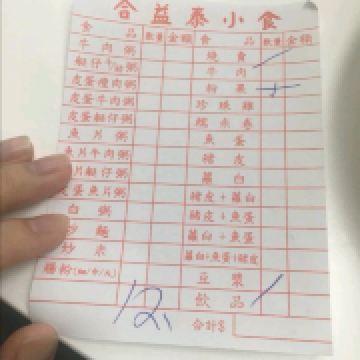 合益泰小食
食品 數量 金額 食品 數量 金額
牛肉粥 燒賣
艇仔粥 牛肉
皮蛋瘦肉粥 粉果
皮蛋牛肉粥 珍珠雞
皮蛋艇仔粥 糯米卷
魚片粥 魚蛋
魚片牛肉粥 豬皮
片艇仔粥 蘿白
皮蛋魚片粥 豬皮+蘿白
白粥 豬皮+魚蛋
炒麵 蘿白+魚蛋
炒米 蘿白+魚蛋+豬皮
腸粉 豆漿
飲品
12
合計$